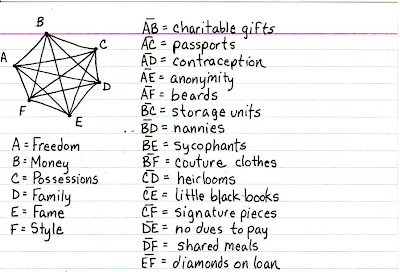 B
C
A
D
F
E
A = Freedom
B = Money
C = Possessions
D = Family
E = Fame
F = Style
A̅B̅ = charitable gifts
A̅C̅ = passports
A̅D̅ = contraception
A̅E̅ = anonymity
A̅F̅ = beards
B̅C̅ = storage units
B̅D̅ = nannies
B̅E̅ = sycophants
B̅F̅ = couture clothes
C̅D̅ = heirlooms
C̅E̅ = little black books
C̅F̅ = signature pieces
D̅E̅ = no dues to pay
D̅F̅ = shared meals
E̅F̅ = diamonds on loan